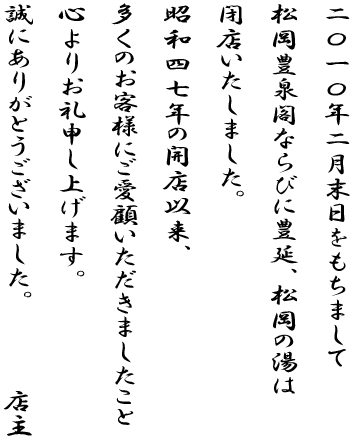 二〇一〇年二月末日をもちまして
松岡豊泉閣ならびに豊延、松岡の湯は
閉店いたしました。
昭和四七年の開店以来、
多くのお客様にご愛顧いただきましたこと
心よりお礼申し上げます。
誠にありがとうございました。
店主